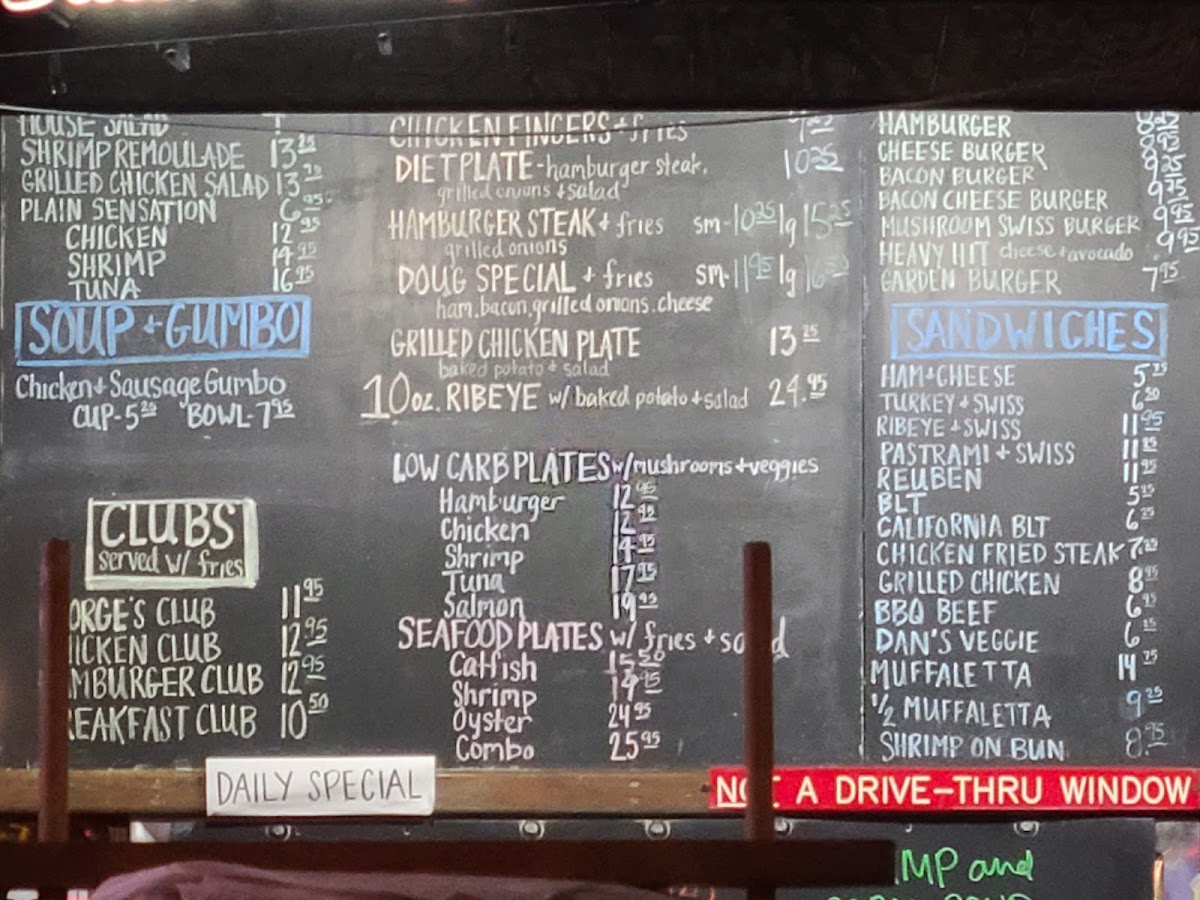 HOUSE SALAD
SHRIMP REMOULADE 13.25
GRILLED CHICKEN SALAD 13
PLAIN SENSATION 6.95
CHICKEN 12.95
SHRIMP 14.95
TUNA 16.95
SOUP + GUMBO
Chicken + Sausage Gumbo
CUP-5.25 BOWL-7.95
CLUBS
served w/ fries
ORGE'S CLUB 11.95
ICKEN CLUB 12.95
MBURGER CLUB 12.95
EAKFAST CLUB 10.50
CHICKEN FINGERS + fries
DIET PLATE - hamburger steak, 10.25
grilled onions + salad
HAMBURGER STEAK + fries sm-10.25 lg 15.25
grilled onions
DOUG SPECIAL + fries sm-11.95 lg
ham, bacon, grilled onions, cheese
GRILLED CHICKEN PLATE 13.25
baked potato + salad
10oz. RIBEYE w/ baked potato + salad 24.95
LOW CARB PLATES w/ mushrooms + veggies
Hamburger 12.95
Chicken 12.95
Shrimp 14.95
Tuna 17.95
Salmon 19.95
SEAFOOD PLATES w/ fries + sa d
Catfish 15.50
Shrimp 19.95
Oyster 24.95
Combo 25.95
HAMBURGER
CHEESE BURGER
BACON BURGER
BACON CHEESE BURGER
MUSHROOM SWISS BURGER
HEAVY HIT cheese + avocado 9.95
GARDEN BURGER 7.95
SANDWICHES
HAM + CHEESE 5
TURKEY + SWISS 6.50
RIBEYE + SWISS 11.95
PASTRAMI + SWISS 11
REUBEN 11.95
BLT 5
CALIFORNIA BLT 6
CHICKEN FRIED STEAK 7
GRILLED CHICKEN 8
BBQ BEEF 6
DAN'S VEGGIE 6
MUFFALETTA 14
1/2 MUFFALETTA 9.25
SHRIMP ON BUN 8.95
DAILY SPECIAL
NOT A DRIVE-THRU WINDOW
MP and